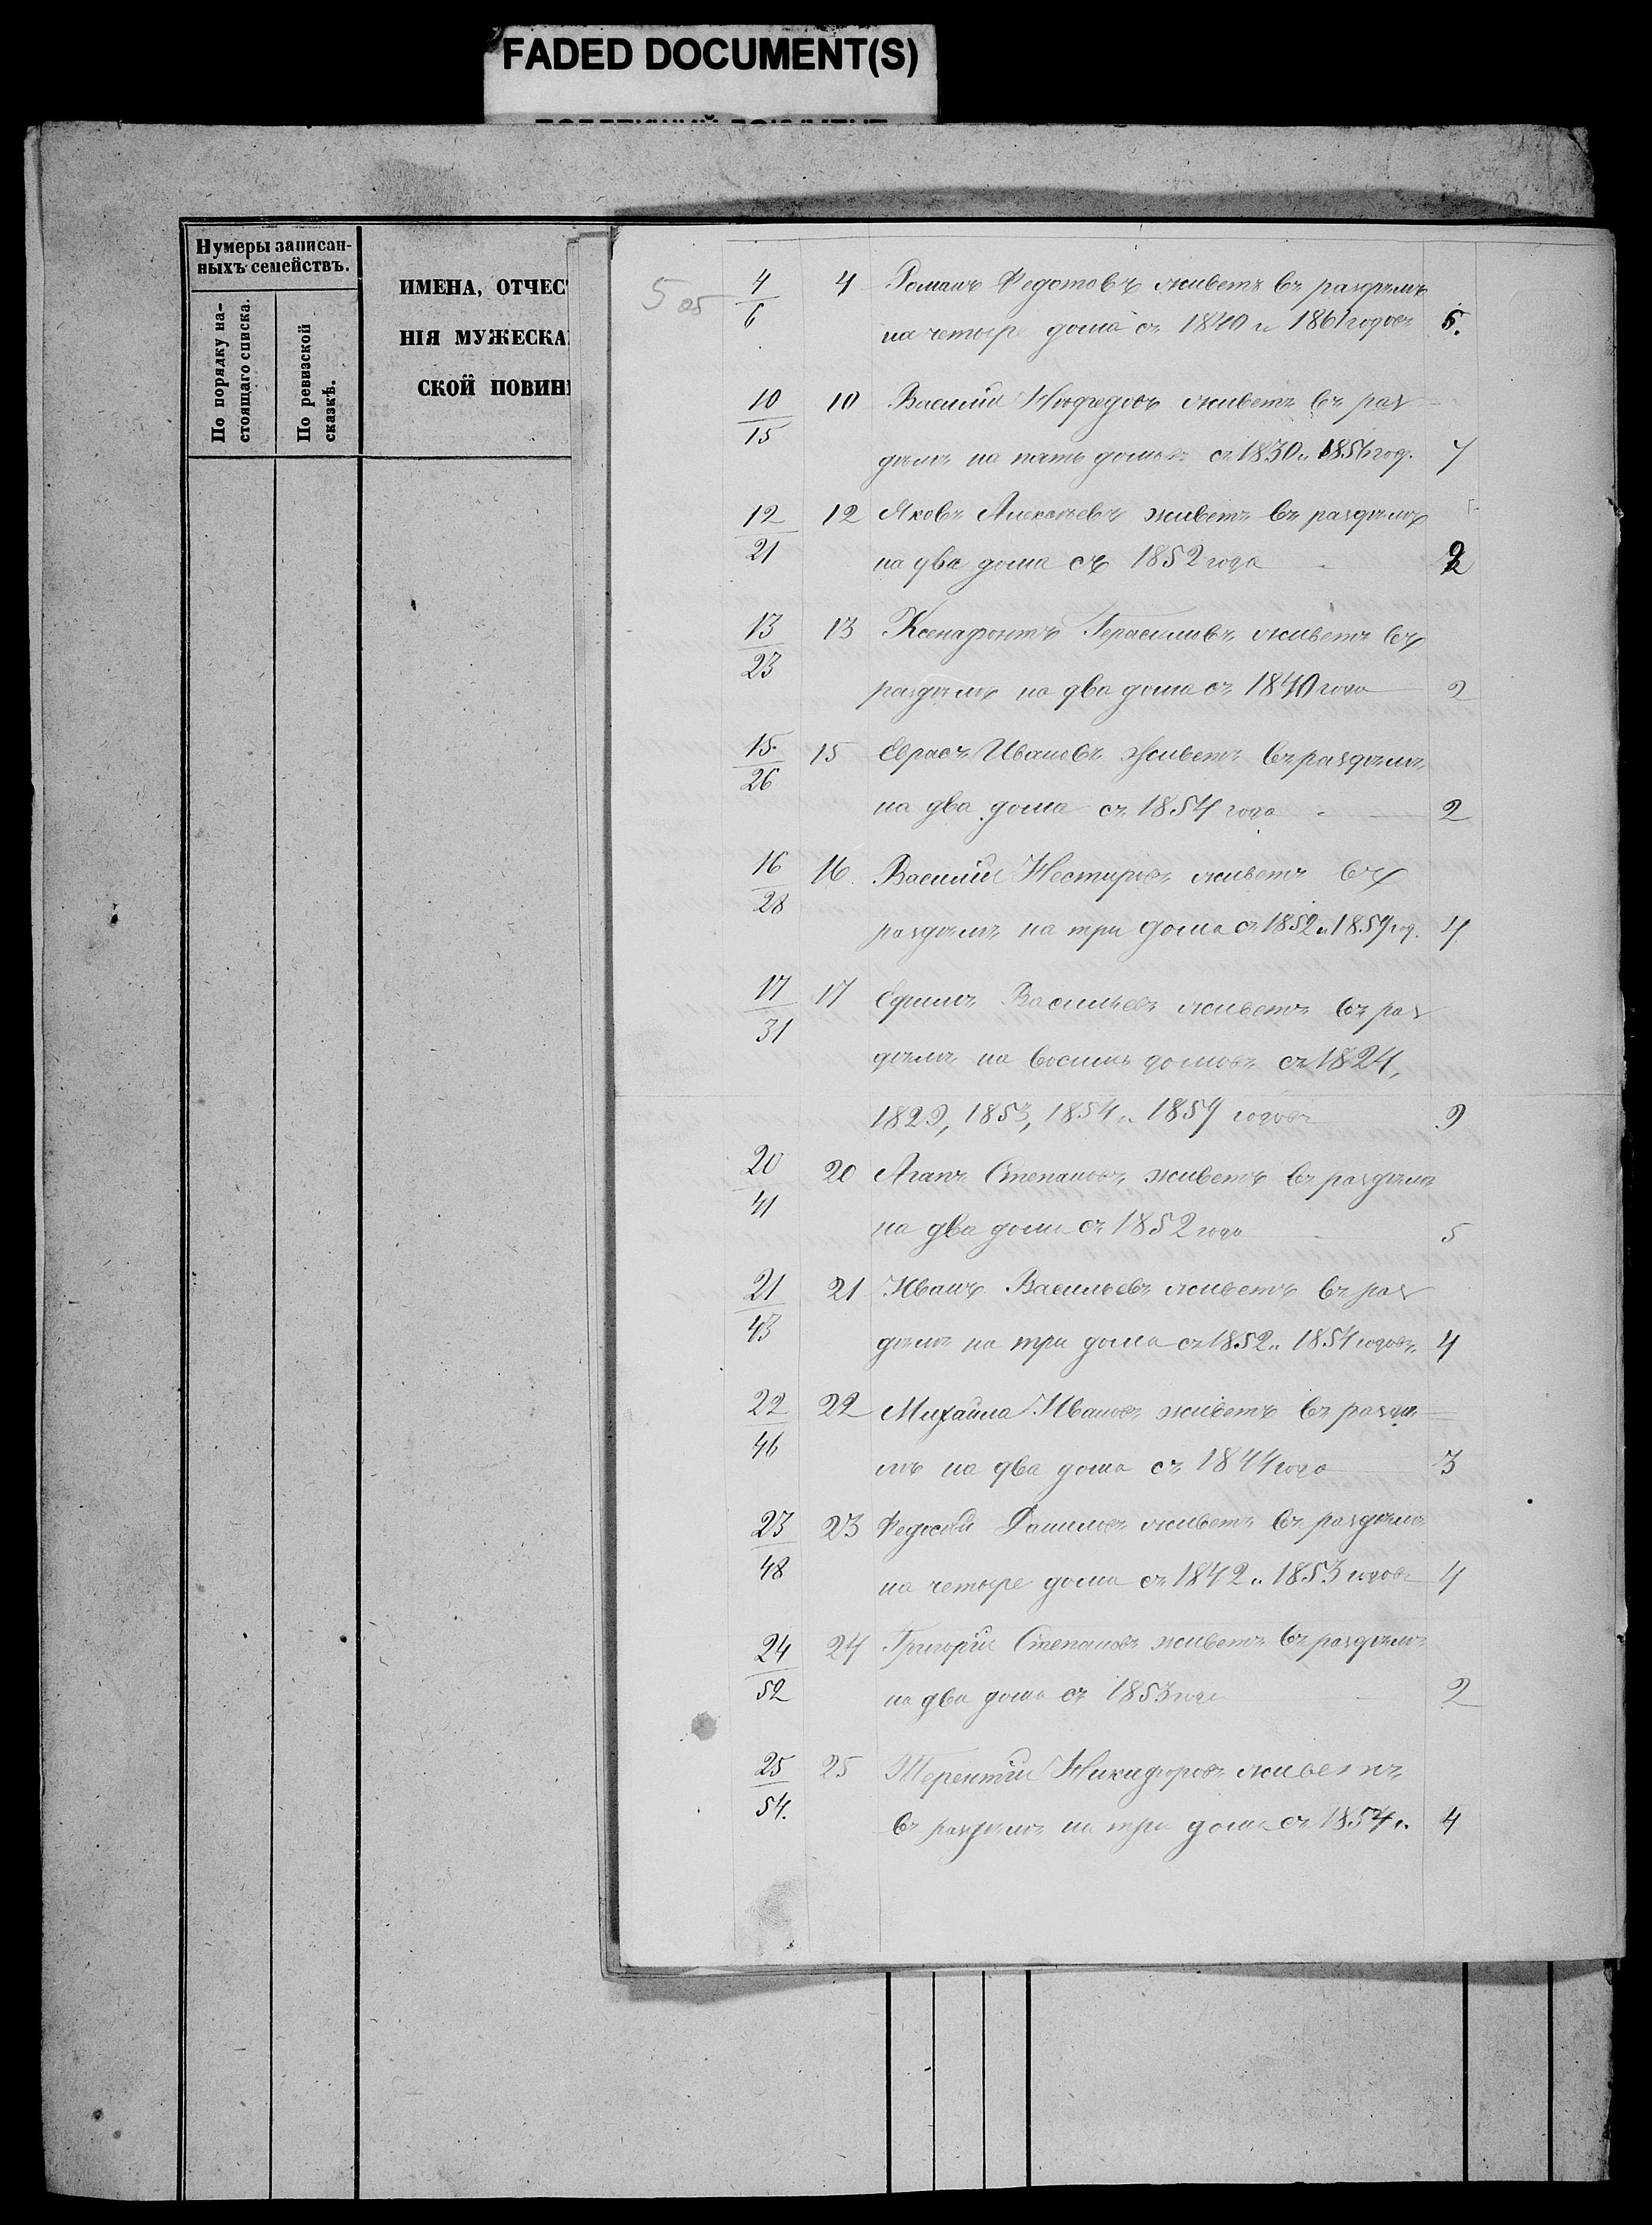 FADED DOCUMENT(S)
Нумеры записан-
ныхъ семействъ.
По порядку на-
стоящаго списка.
По ревизской
сказкѣ.
ИМЕНА, ОТЧЕС
НІЯ МУЖЕСКА
СКОЙ ПОВИН
5 об
4/6 4 Романъ Федотовъ живетъ въ раздѣлѣ
на четыре дома съ 1840 и 1861 годовъ 6.
10/15 10 Василій живетъ въ раз
дѣлѣ на пять домовъ съ 1830 и 1856 год. 7
12/21 12 Яковъ Алексѣевъ живетъ въ раздѣлѣ
на два дома съ 1852 года 2
13/23 13 Ксенафонтъ Герасимовъ живетъ въ
раздѣлѣ на два дома съ 1840 года 2
15/26 15 Иванов живетъ въ раздѣлѣ
на два дома съ 1854 года 2
16/28 16 Василій Нестировъ живетъ въ
раздѣлѣ на три дома съ 1852 и 1859 год. 4
17/31 17 Ефимъ Васильевъ живетъ въ раз
дѣлѣ на восимь домовъ съ 1824,
1829, 1853, 1854 и 1859 годовъ 9
20/41 20 Агапъ Степановъ живетъ въ раздѣлѣ
на два дома съ 1852 года 5
21/43 21 Иванъ Васильевъ живетъ въ раз
дѣлѣ на три дома съ 1852 и 1854 годовъ 4
22/46 22 Михаила Ивановъ живетъ въ раздѣ
лѣ на два дома съ 1844 года 3
23/48 23 Федосѣй Даниловъ живетъ въ раздѣлѣ
на четыре дома съ 1842 и 1853 годовъ 4
24/52 24 Григорій Степановъ живетъ въ раздѣлѣ
на два дома съ 1853 года 2
25/54. 25 Терентій Никифоровъ живетъ
въ раздѣлѣ на три дома съ 1854 и 4